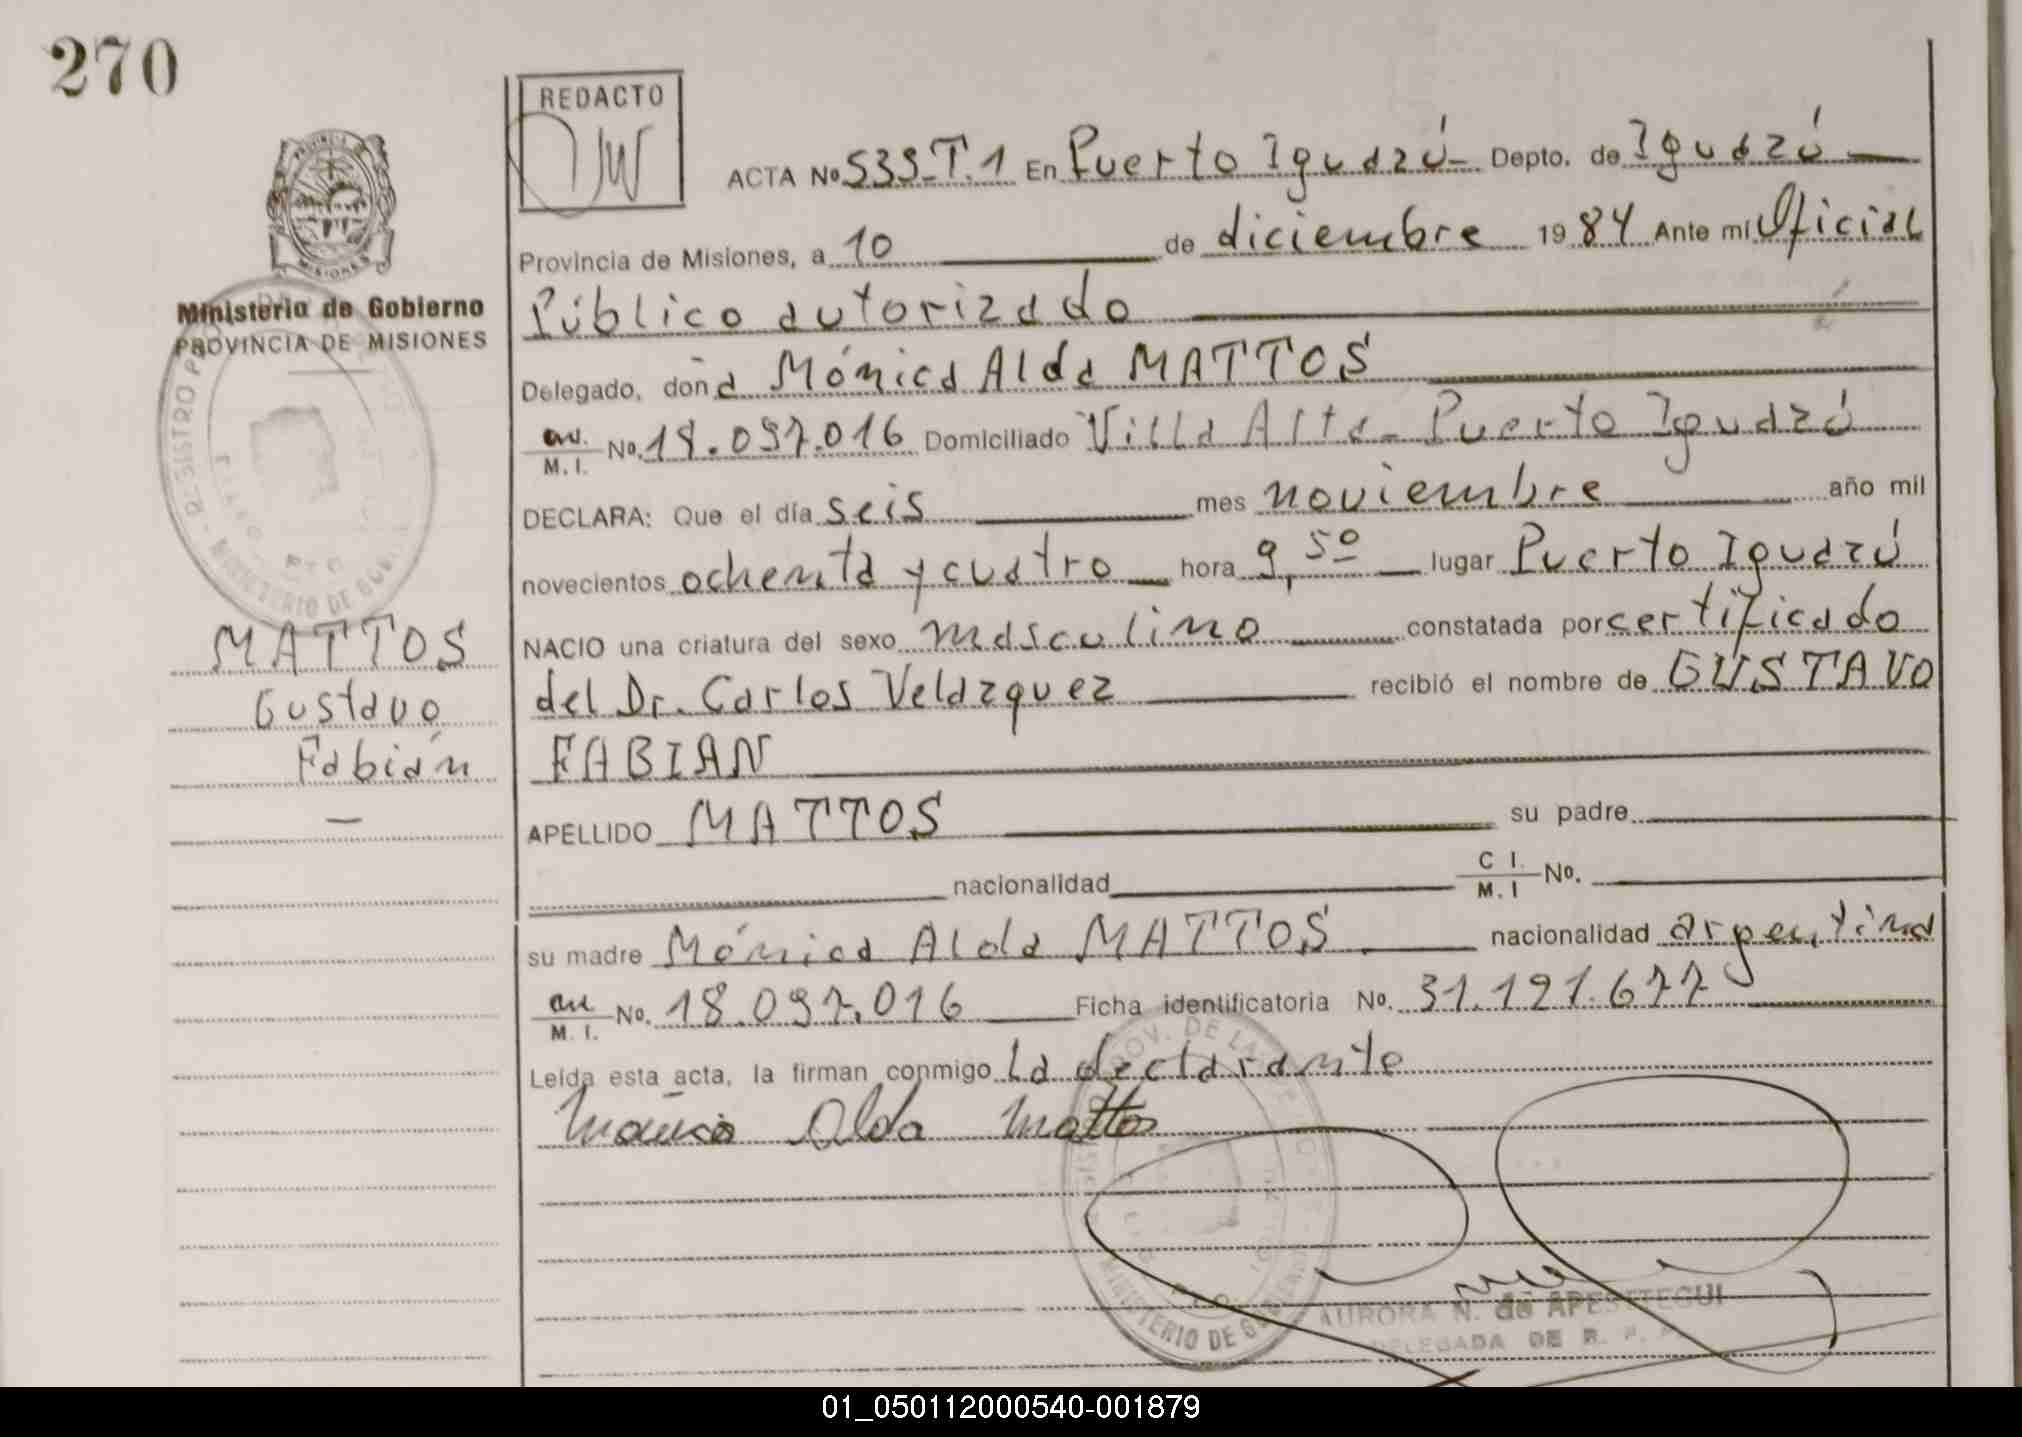 270
REDACTO
ACTA No 539-T.1 En Puerto Iguazú- Depto. de Iguazú
Provincia de Misiones, a 10 de diciembre 1984 Ante mi Oficial
Público autorizado
Delegado, don a Mónica Alda MATTOS
M. I. No. 18.097.016 Domiciliado Villa Alta- Puerto Iguazú
DECLARA: Que el día seis mes noviembre año mil
novecientos ochenta y cuatro hora 9,50 lugar Puerto Iguazú
NACIO una criatura del sexo masculino constatada por certificado
del Dr. Carlos Velazquez recibió el nombre de GUSTAVO
FABIAN
APELLIDO MATTOS su padre
nacionalidad C I. M. I No.
su madre Mónica Alda MATTOS nacionalidad argentina
M. I. No. 18.097.016 Ficha identificatoria No. 31.191.677
Leída esta acta, la firman conmigo La declarante
Mónica Alda Mattos
AURORA N. de APESTEGUI
DELEGADA DE R. P.
PROVINCIA DE
MISIONES
Ministerio de Gobierno
PROVINCIA DE MISIONES
REGISTRO
MINISTERIO DE GOB
MATTOS
Gustavo
Fabián
PROV. DE LA
MINISTERIO DE GOBIERNO
01_050112000540-001879